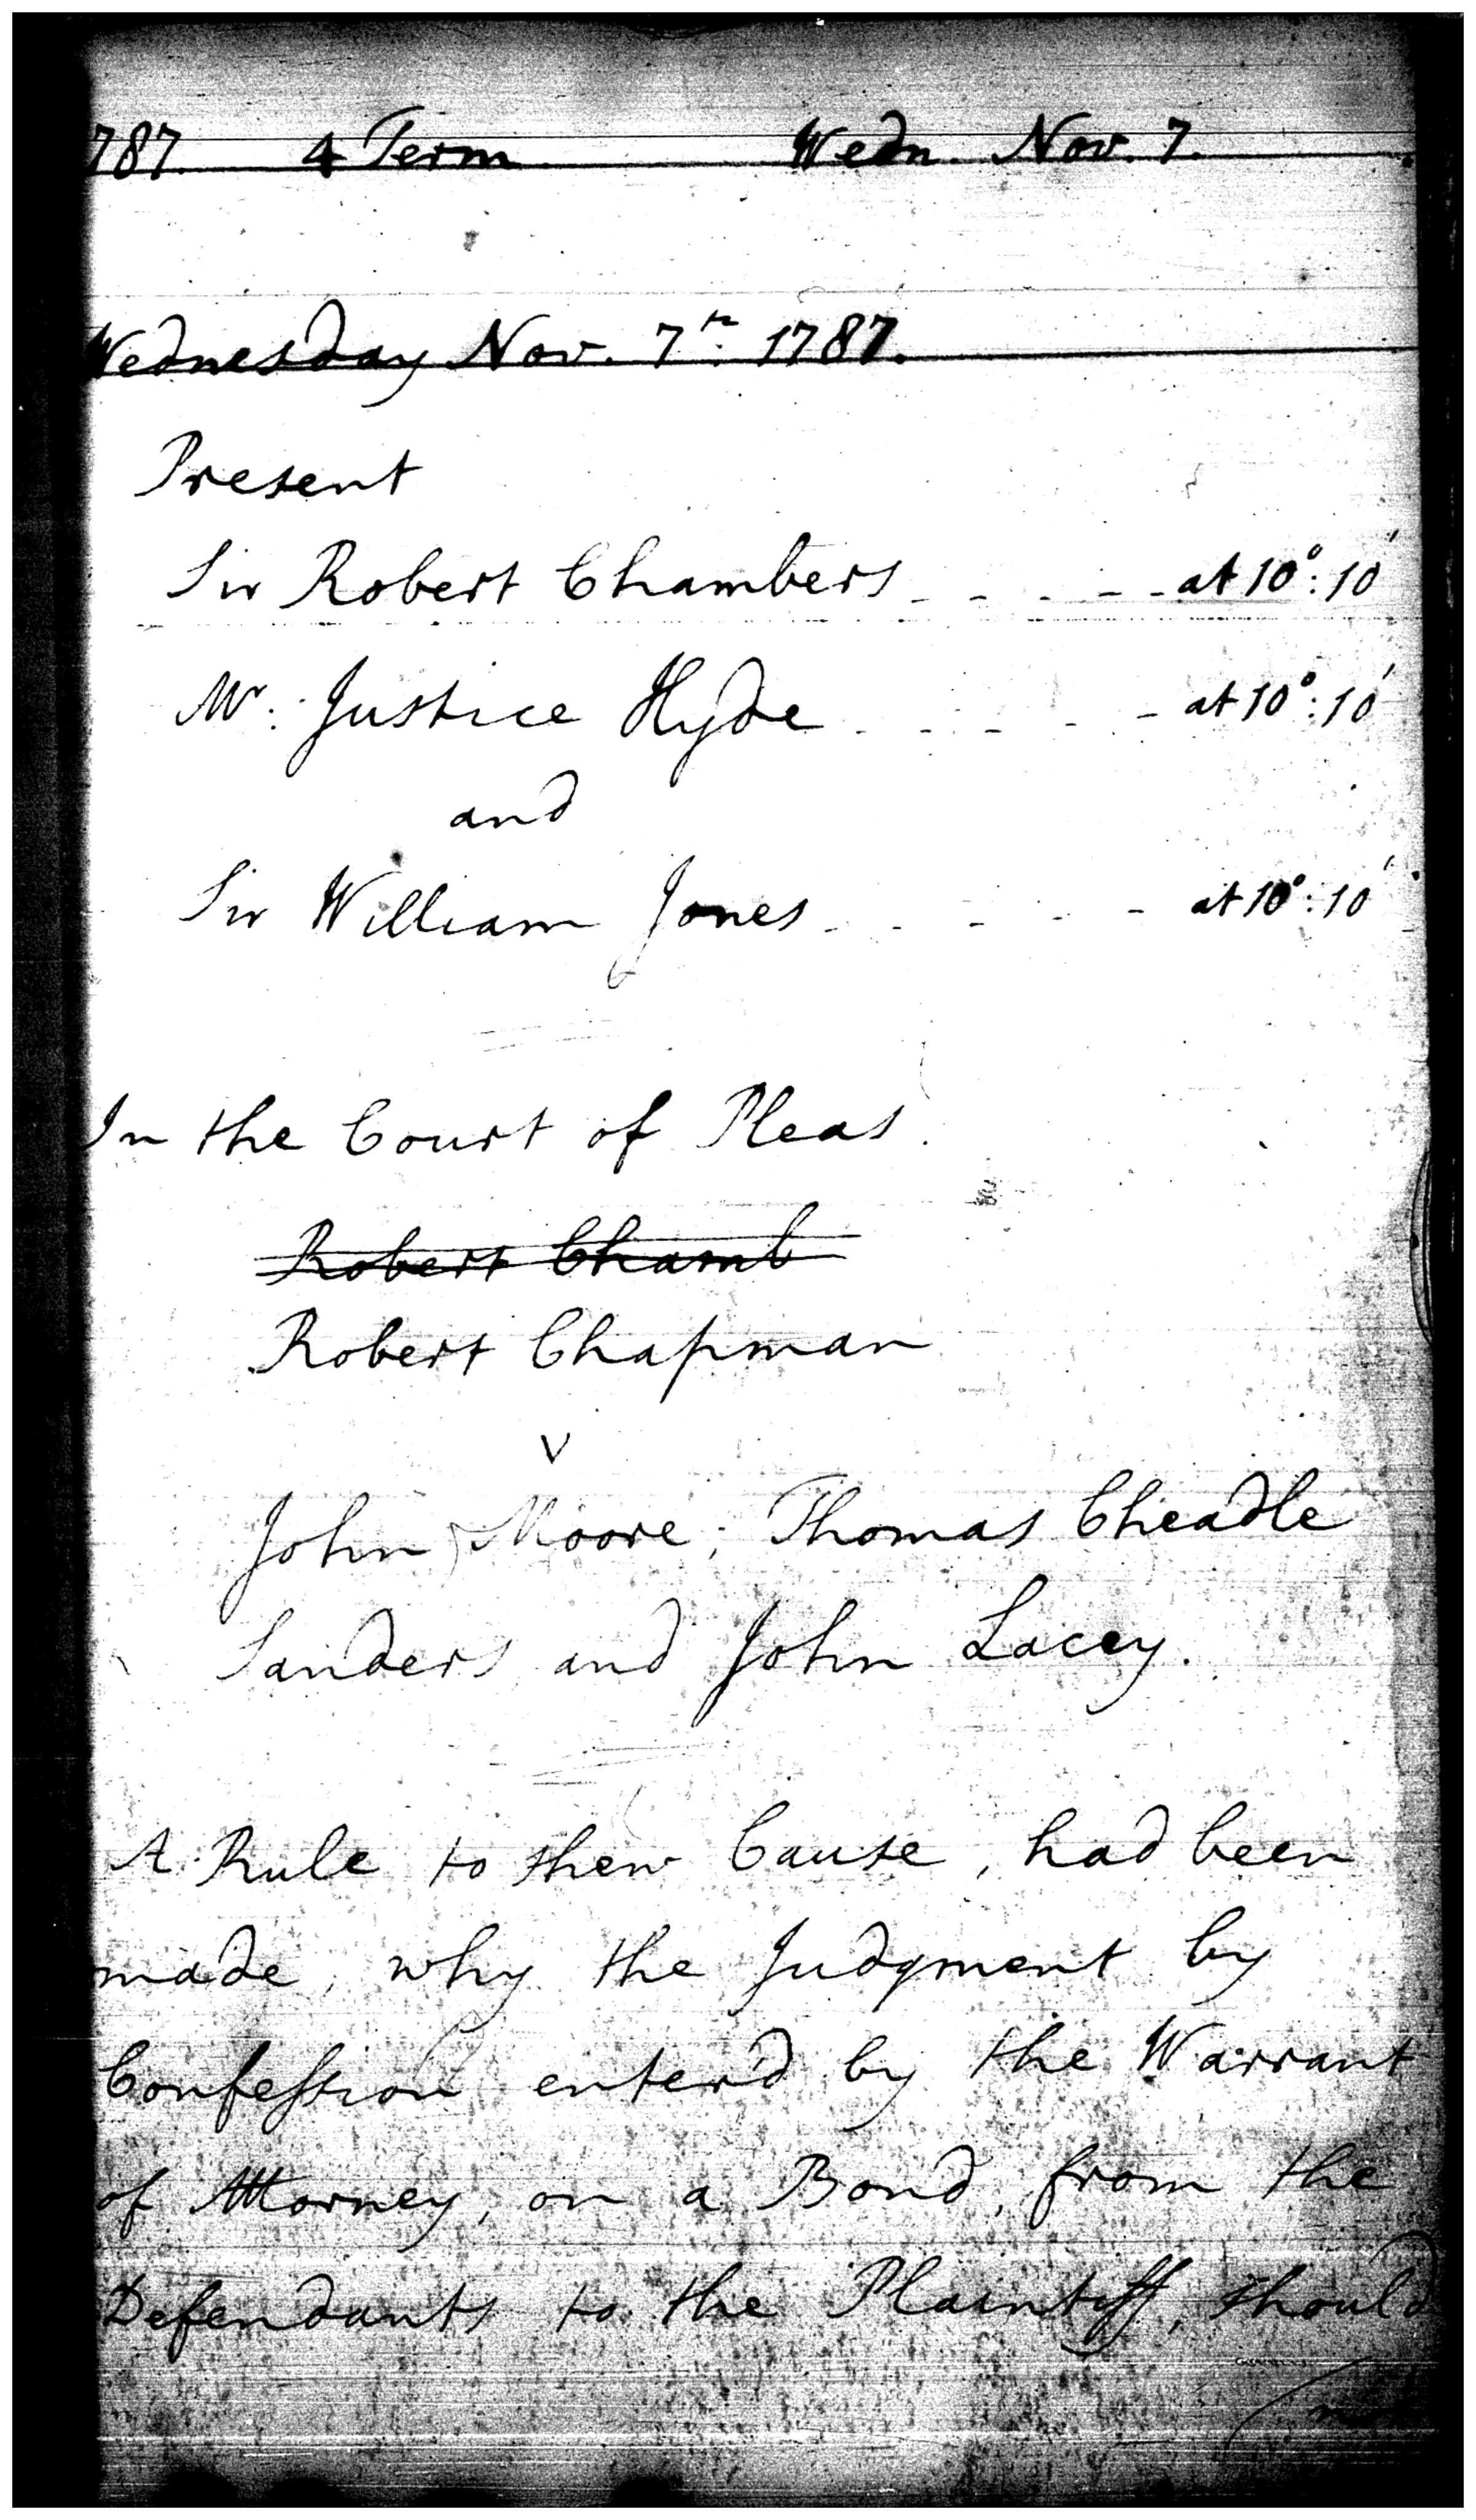 787. 4 Term. Wedn. Nov. 7.
Wednesday Nov. 7th. 1787.
Present
Sir Robert Chambers - - - - - at 10°: 10'
Mr. Justice Hyde - - - - - at 10°: 10'
and
Sir William Jones - - - - - at 10°: 10'
In the Court of Pleas.
Robert Chamb
Robert Chapman
v
John Moore; Thomas Cheadle
Sanders and John Lacey.
A Rule to shew Cause, had been
made, why the Judgment by
Confession enter'd by the Warrant
of Attorney, on a Bond, from the
Defendants to the Plaintiff, should